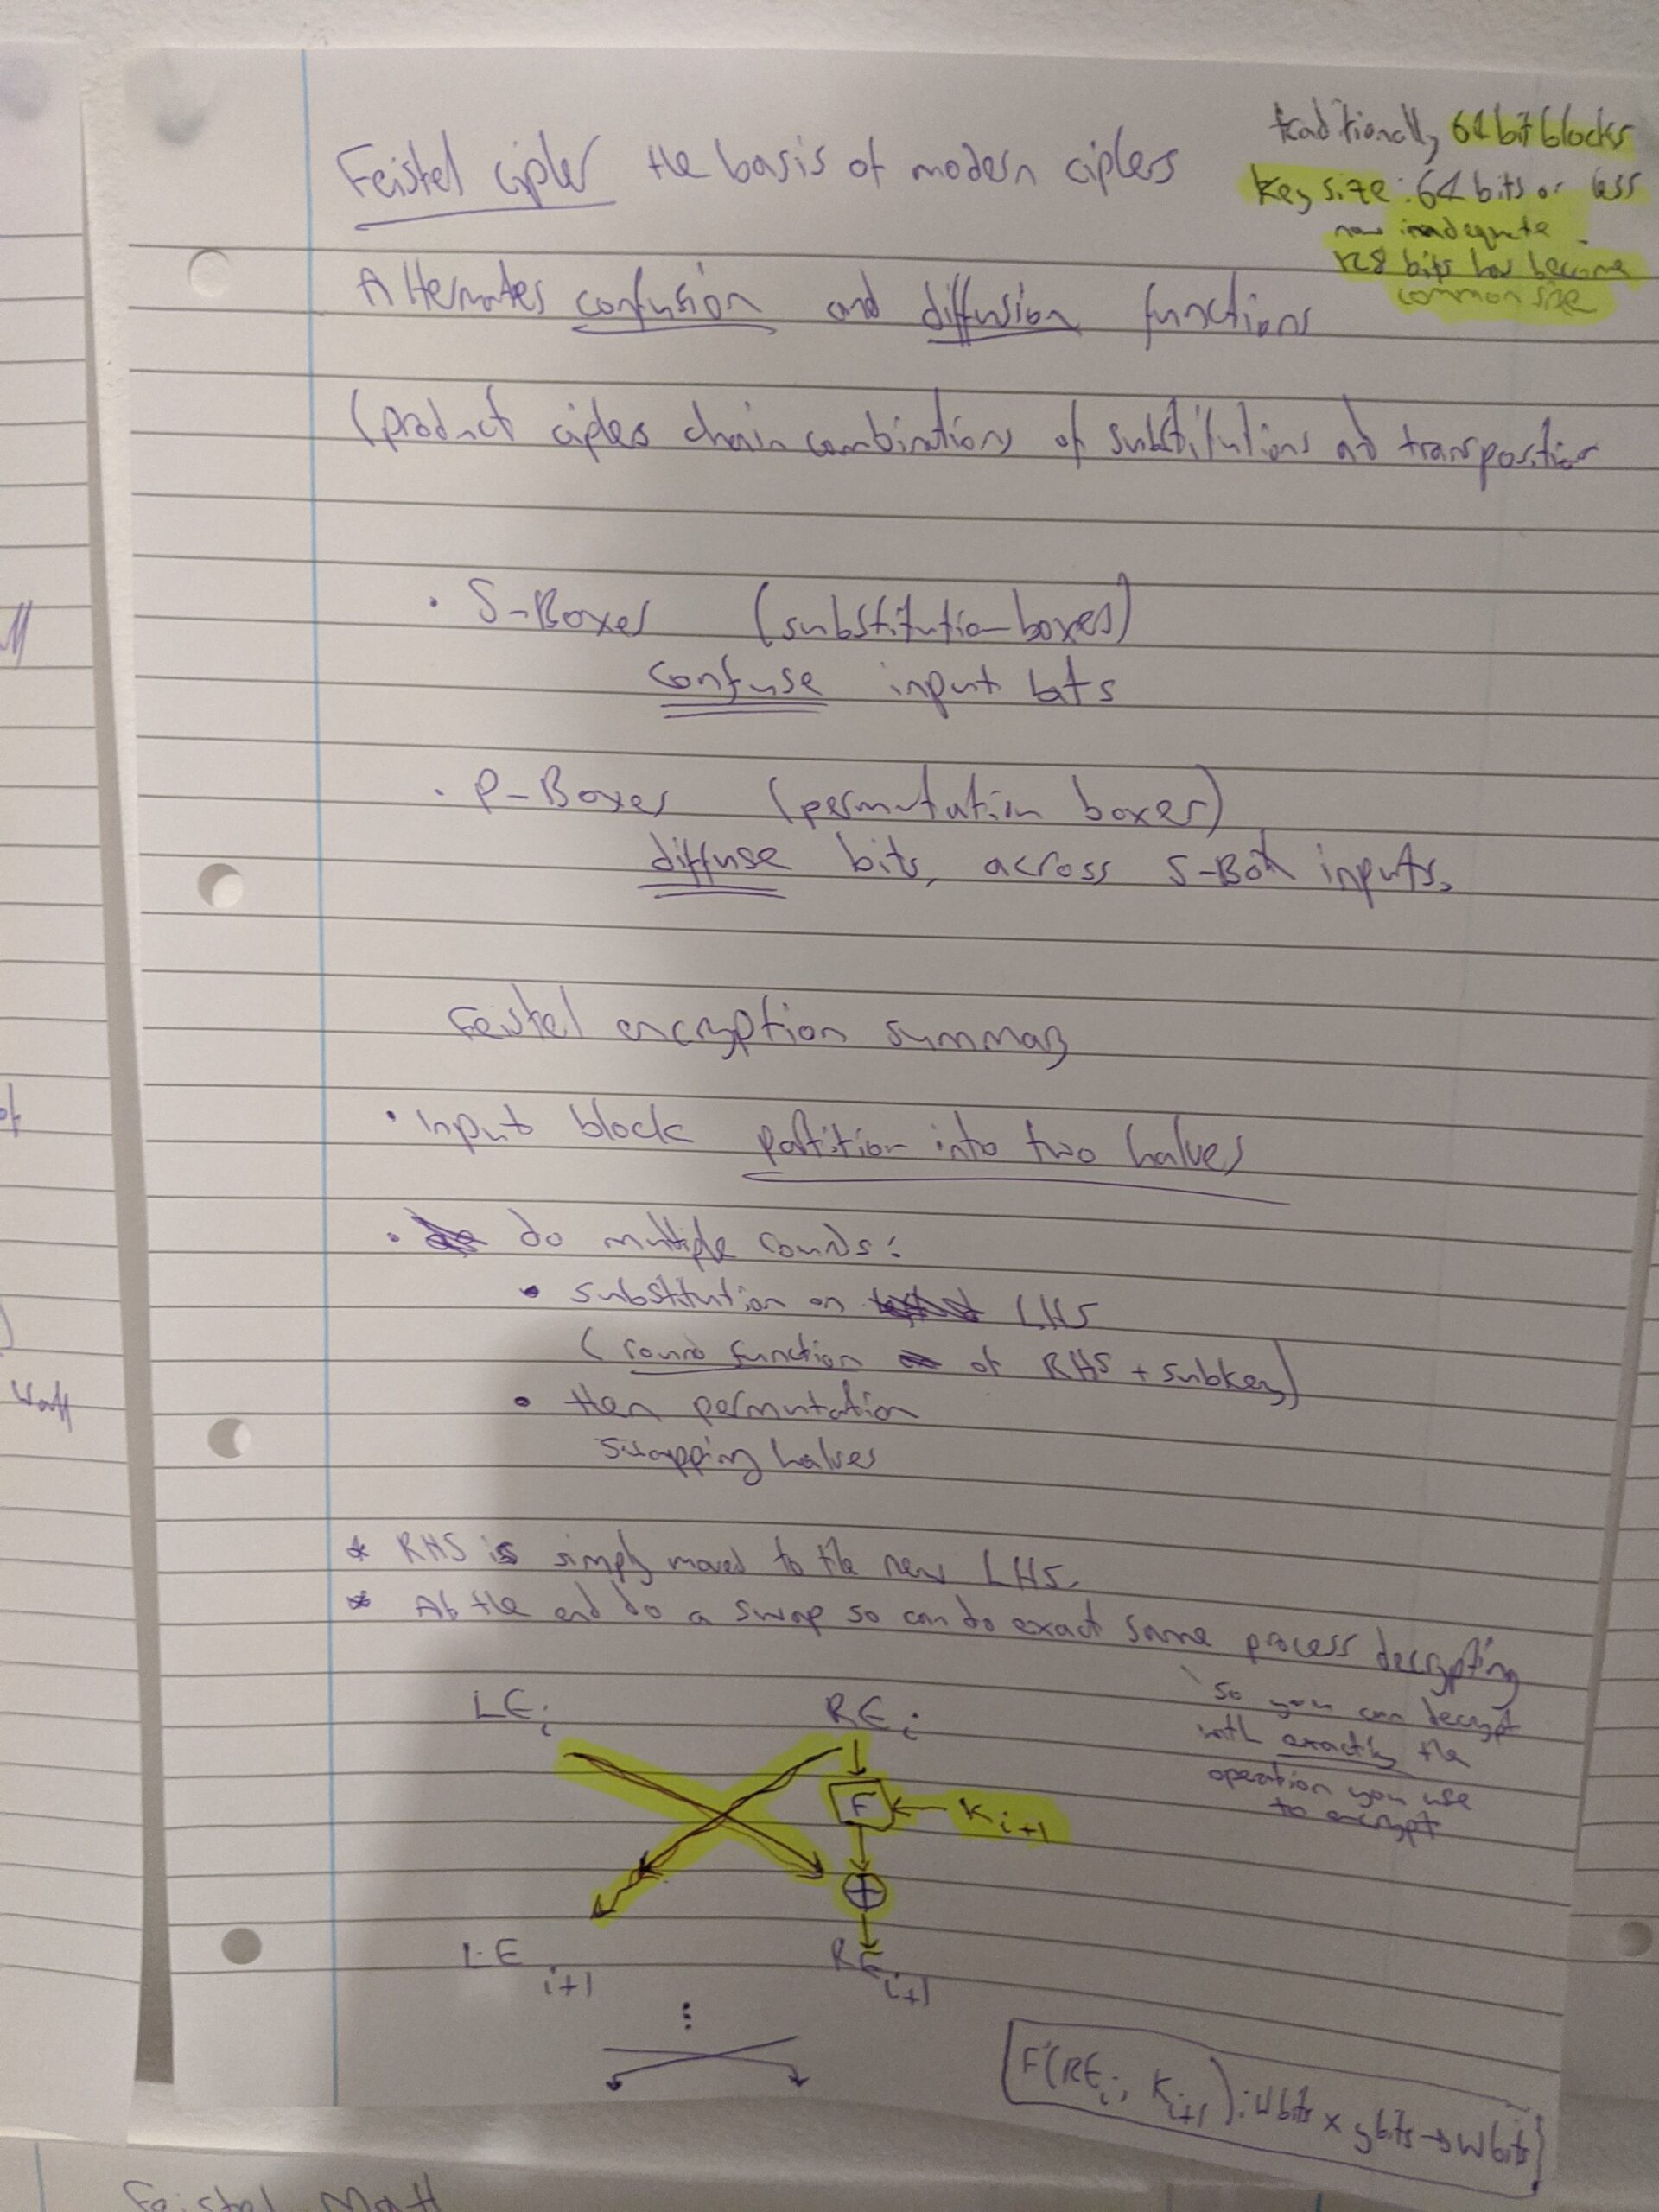 traditionally 64 bit blocks
Key size: 64 bits or less
now inadequate
128 bits has become
common size
Feistel cipher the basis of modern ciphers
Alternates confusion and diffusion functions
(product ciphers chain combinations of substitutions and transposition
· S-Boxes (substitution boxes)
confuse input bits
· P-Boxes (permutation boxes)
diffuse bits, across S-Box inputs.
Feistel encryption summary
· Input block partition into two halves
· do multiple rounds:
• substitution on LHS
(round function of RHS + subkey)
• then permutation
swapping halves
* RHS is simply moved to the new LHS.
* At the end do a swap so can do exact same process decrypting
so you can decrypt
with exactly the
operation you use
to encrypt
LE i RE i
F ← K i+1
⊕
LE i+1 RE i+1
⋮
F(RE i, K i+1): w bits x y bits → w bits
Feistel Math
of
Wall